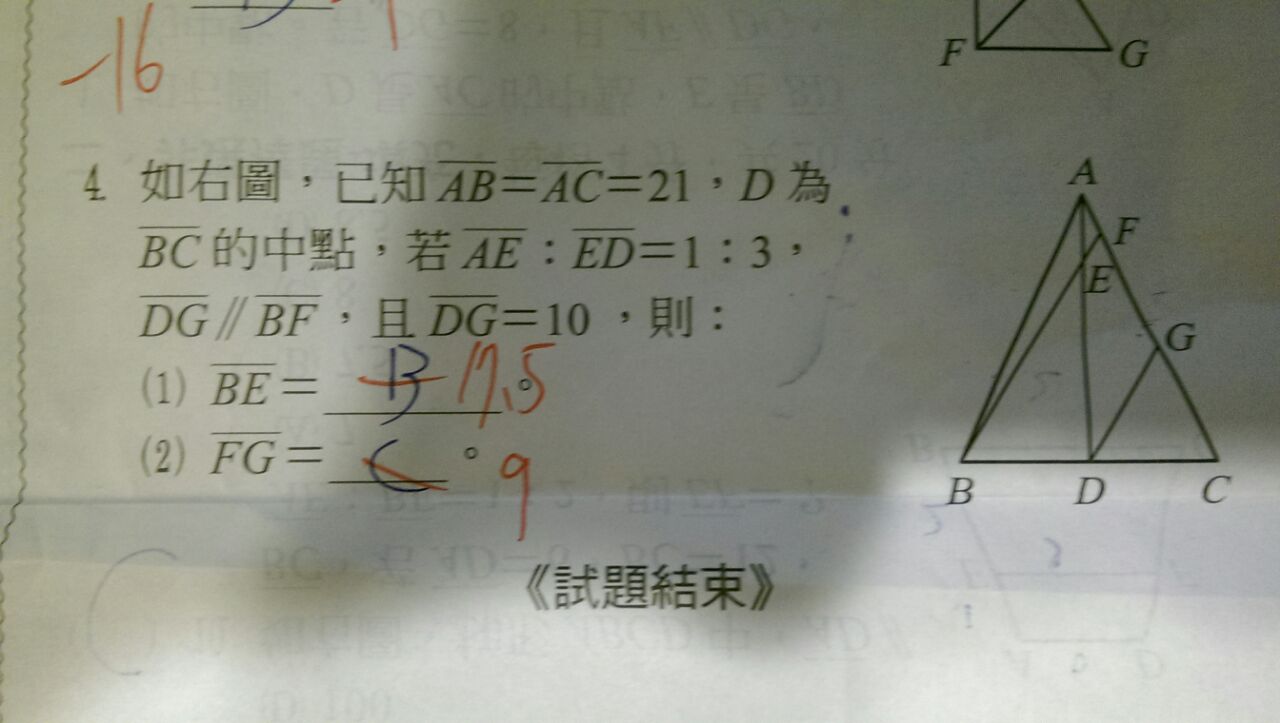 -16
F G
4. 如右圖，已知 AB=AC=21，D 為
BC 的中點，若 AE：ED=1：3，
DG∥BF，且 DG=10，則：
(1) BE= 13 17.5 。
(2) FG= 。 9
《試題結束》
A
F
E
G
B D C